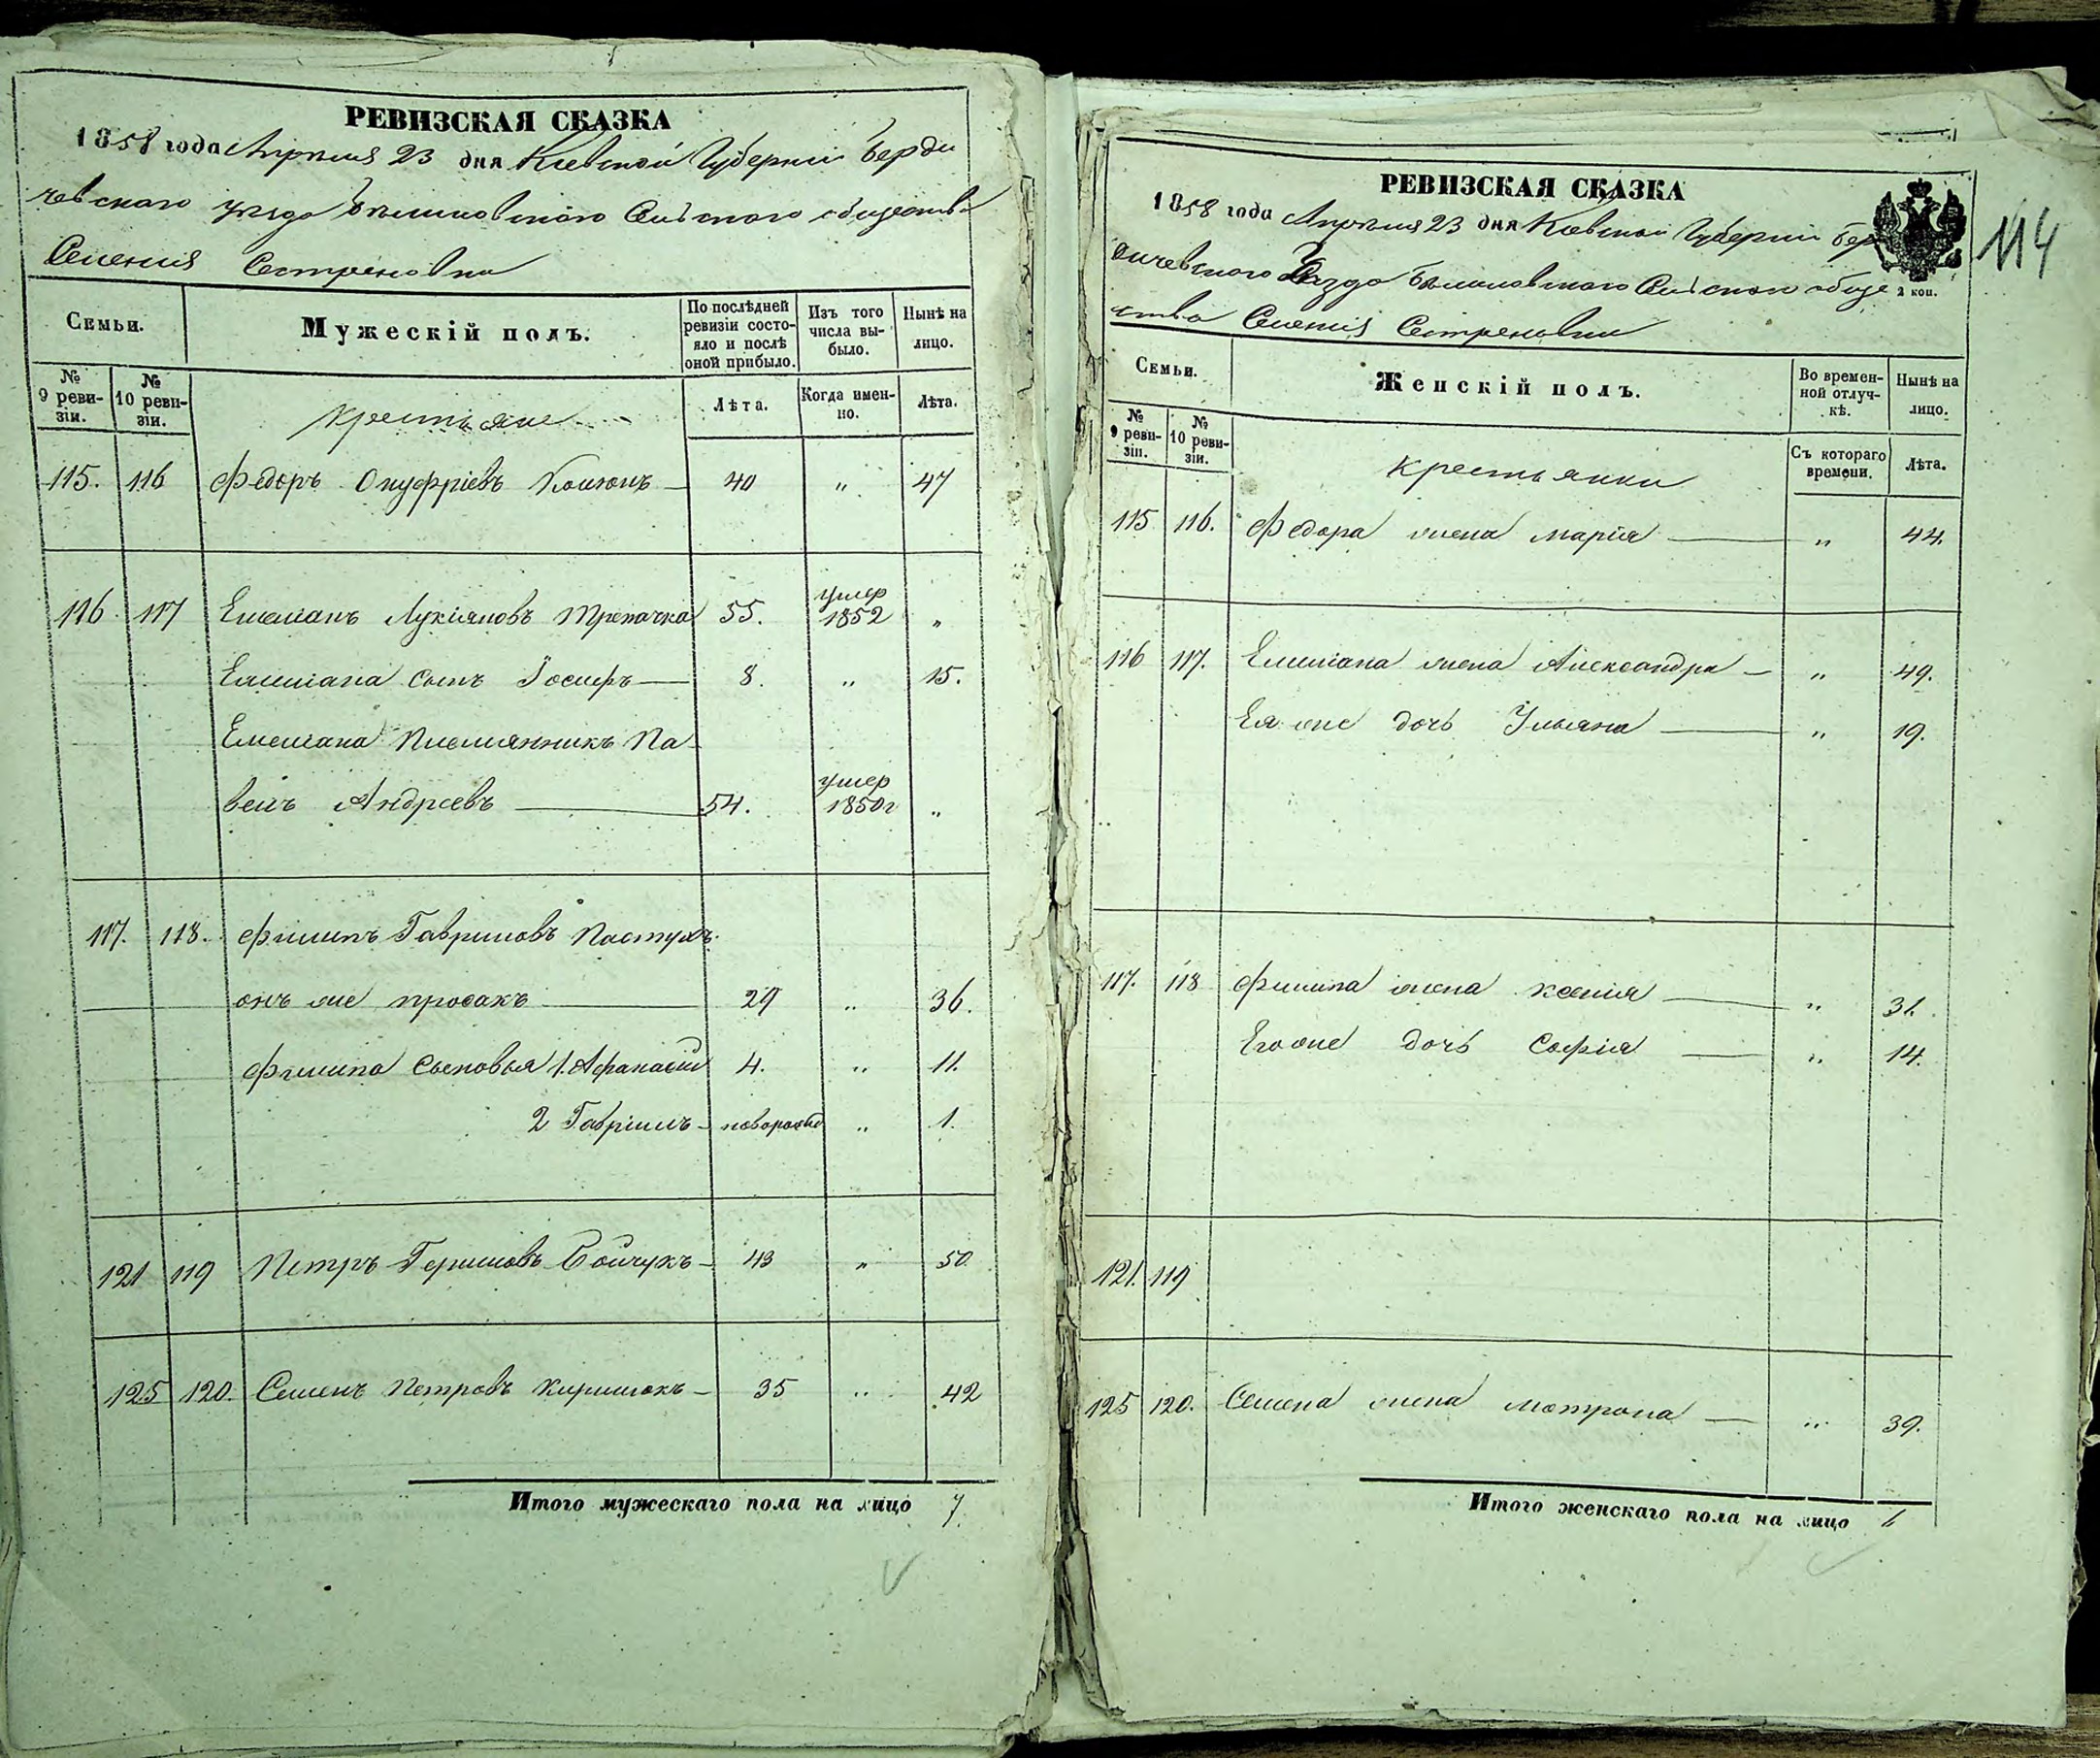 РЕВИЗСКАЯ СКАЗКА
1858 года Апрѣля 23 дня Кіевской Губерніи Берди
чевскаго уѣзда Бѣлиловскаго Сельскаго общества
Селенія Сестреновки
Семьи.
Мужескій полъ.
По послѣдней ревизіи состояло и послѣ оной прибыло.
Изъ того числа выбыло.
Нынѣ на лицо.
№ 9 ревизіи.
№ 10 ревизіи.
Крестьяне
Лѣта.
Когда именно.
Лѣта.
115. 116 Федоръ Онуфріевъ 40 " 47
116. 117 Емеліанъ Лукіяновъ Трепачка 55. умер 1852 "
Емеліана сынъ Іосифъ 8. " 15.
Емеліана племянникъ Па
велъ Андреевъ 54. умер 1850 г "
117. 118. Филипъ Гавриловъ Пастухъ
онъ же просакъ 29 " 36.
Филипа сыновья 1. Афанасій 4. " 11.
2 Гавріилъ новорожд " 1.
121 119 Петръ Бойчукъ 43 " 50
125 120. Семенъ Петровъ Кирилюкъ 35 " 42
Итого мужескаго пола на лицо 7.
114
РЕВИЗСКАЯ СКАЗКА
1858 года Апрѣля 23 дня Кіевской Губерніи Бер
дичевскаго Уѣзда Бѣлиловскаго Сельскаго обще
ства Селенія Сестреновки
2 коп.
Семьи.
Женскій полъ.
Во временной отлучкѣ.
Нынѣ на лицо.
№ 9 ревизіи.
№ 10 ревизіи.
Крестьянки
Съ котораго времени.
Лѣта.
115 116. Федора жена Марія " 44.
116 117. Емеліана жена Александра " 49.
Ея же дочь Ульяна " 19.
117. 118 Филипа жена Ксенія " 31.
Его же дочь Софія " 14.
121. 119
125 120. Семена жена Мотрона " 39.
Итого женскаго пола на лицо 6